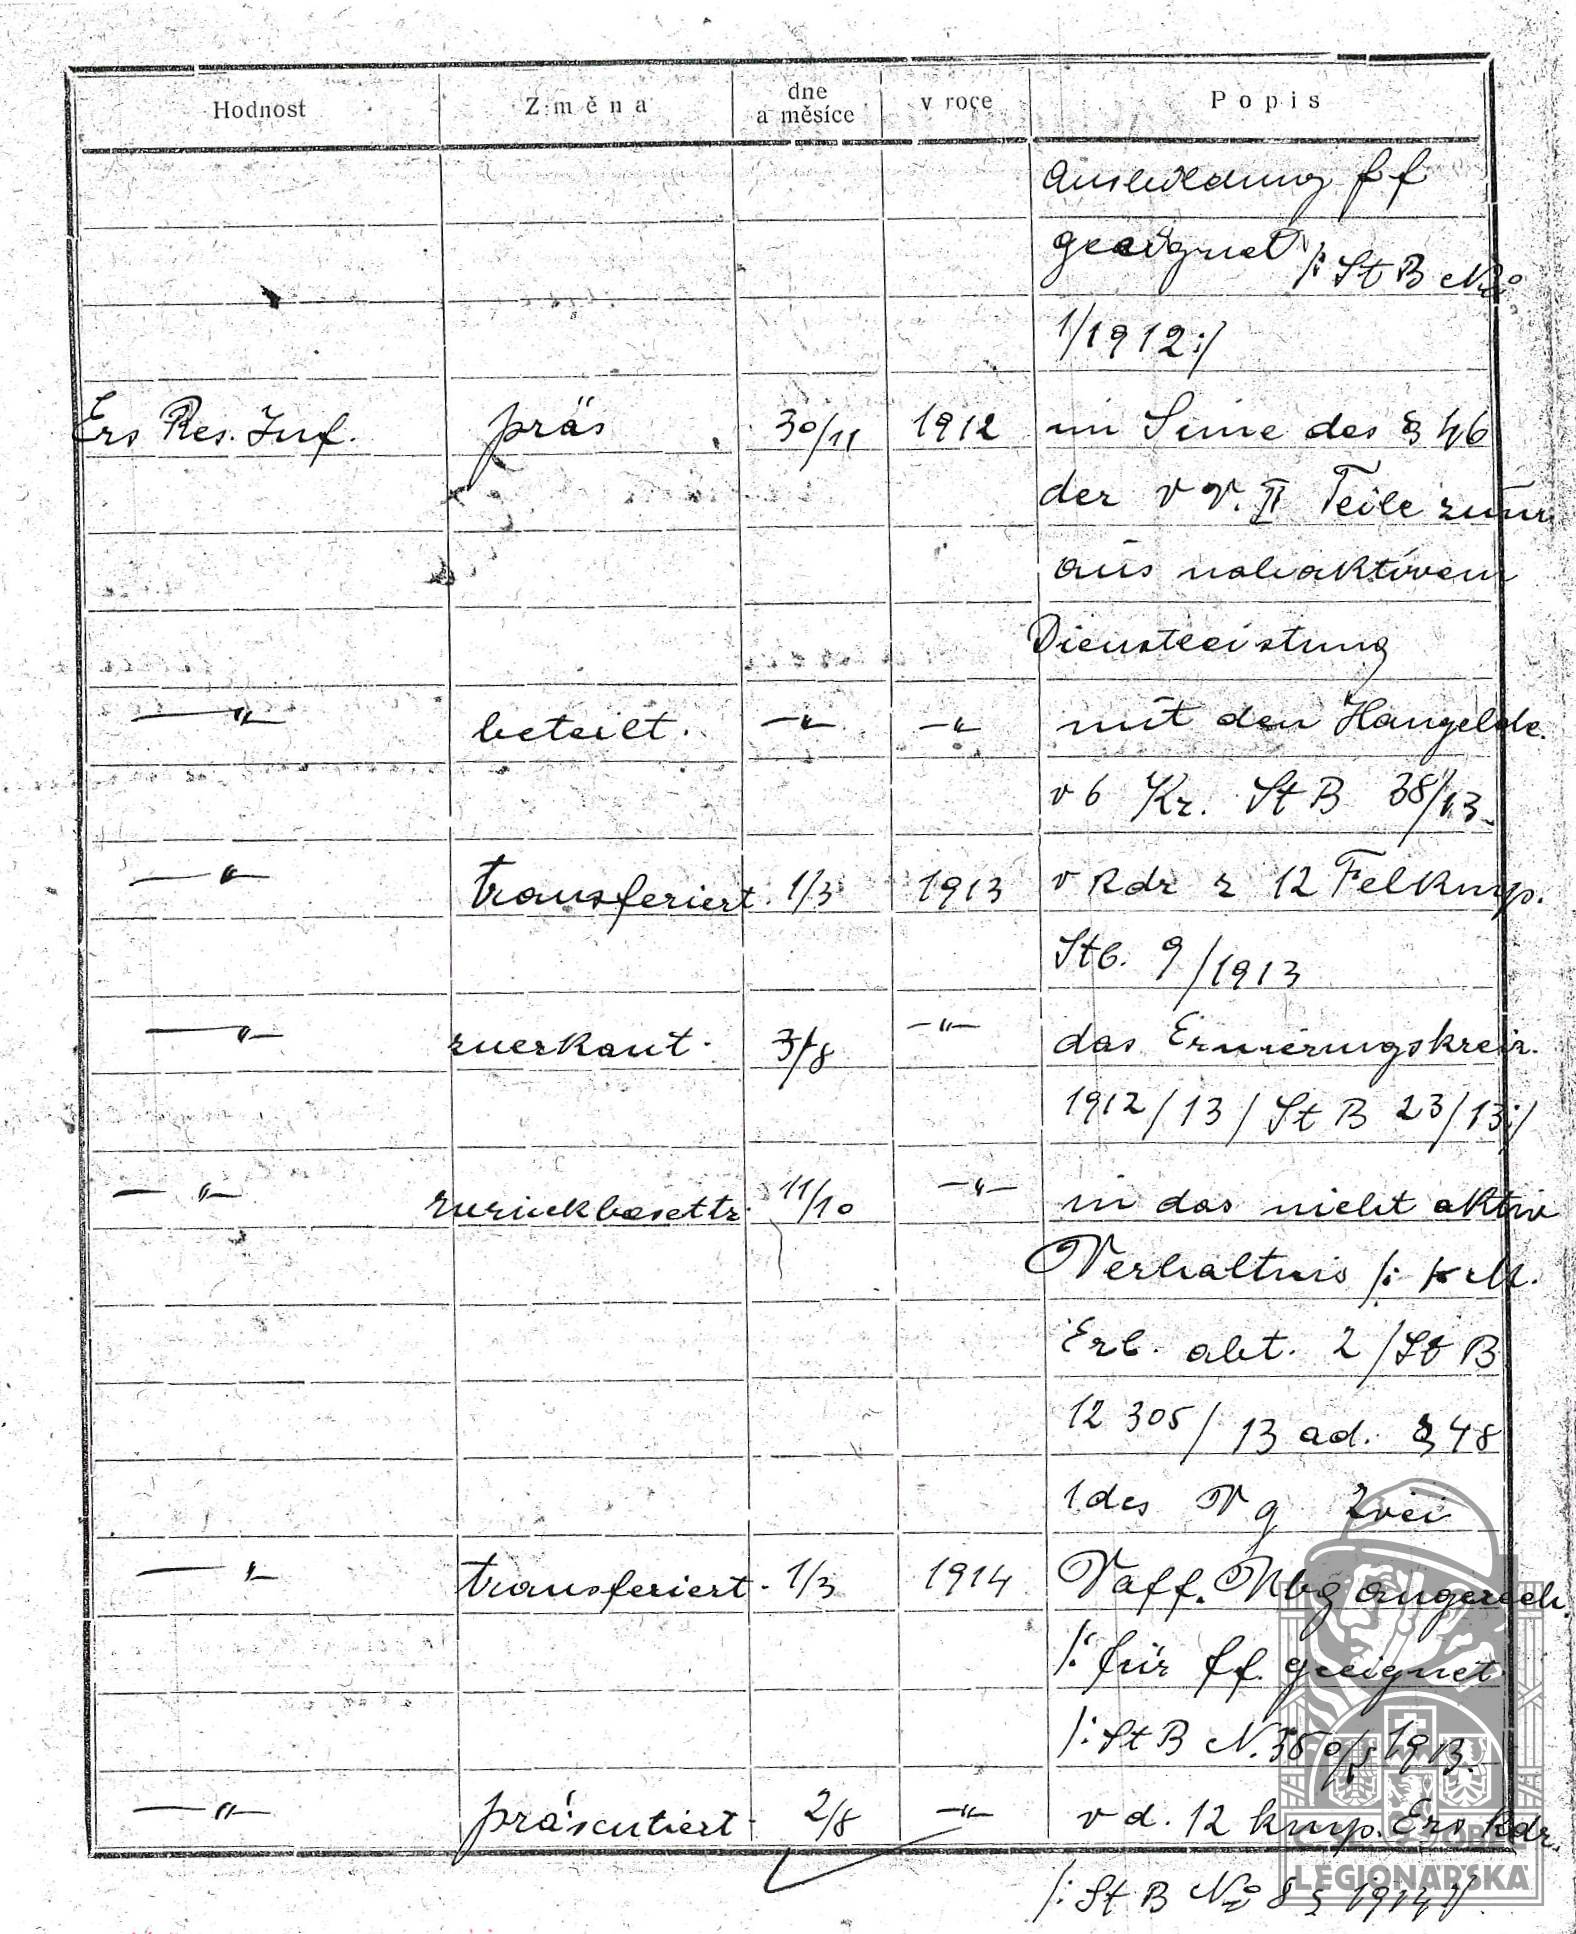 Hodnost Změna dne a měsíce v roce Popis
Ausbildung ff
geeignet /: St B No
1/1912 :/
Ers Res. Inf. präs 30/11 1912 im Sinne des § 46
der v V. II Teile zur
aus nichaktivem
Dienstleistung
—"— beteilt. —"— —"— mit den
v 6 Kr. St B 38/13
—"— transferiert. 1/3 1913 v Kdr z 12 Felkmp.
Stb. 9/1913
—"— zuerkant. 3/8 —"— das
1912/13/ St B 23/13 :/
—"— 11/10 —"— in das nicht aktiv
Verhältnis /: k M.
Erl. abt. 2/St B
12 305/13 ad. § 48
1 des V g
—"— transferiert. 1/3 1914
/: für ff. geeignet
/: St B N. 1913.
—"— präsentiert. 2/8 —"— v d. 12 kmp. Ers Kdr.
/: St B No 8 1914 :/
ČS. OBEC
LEGIONÁŘSKÁ